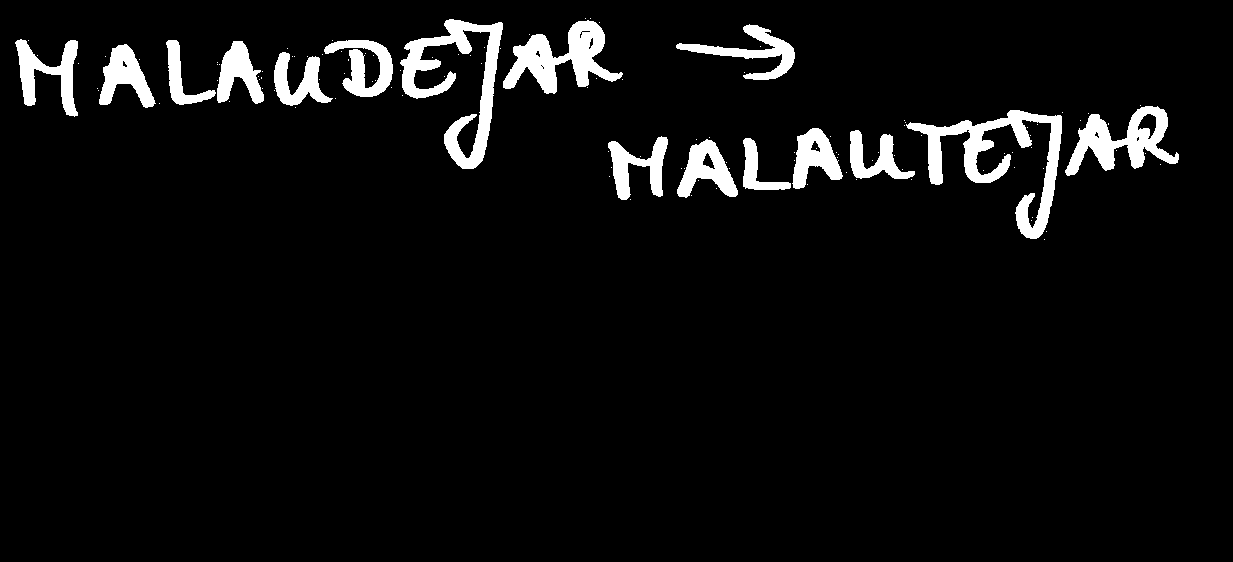 MALAUDEJAR →
MALAUTEJAR